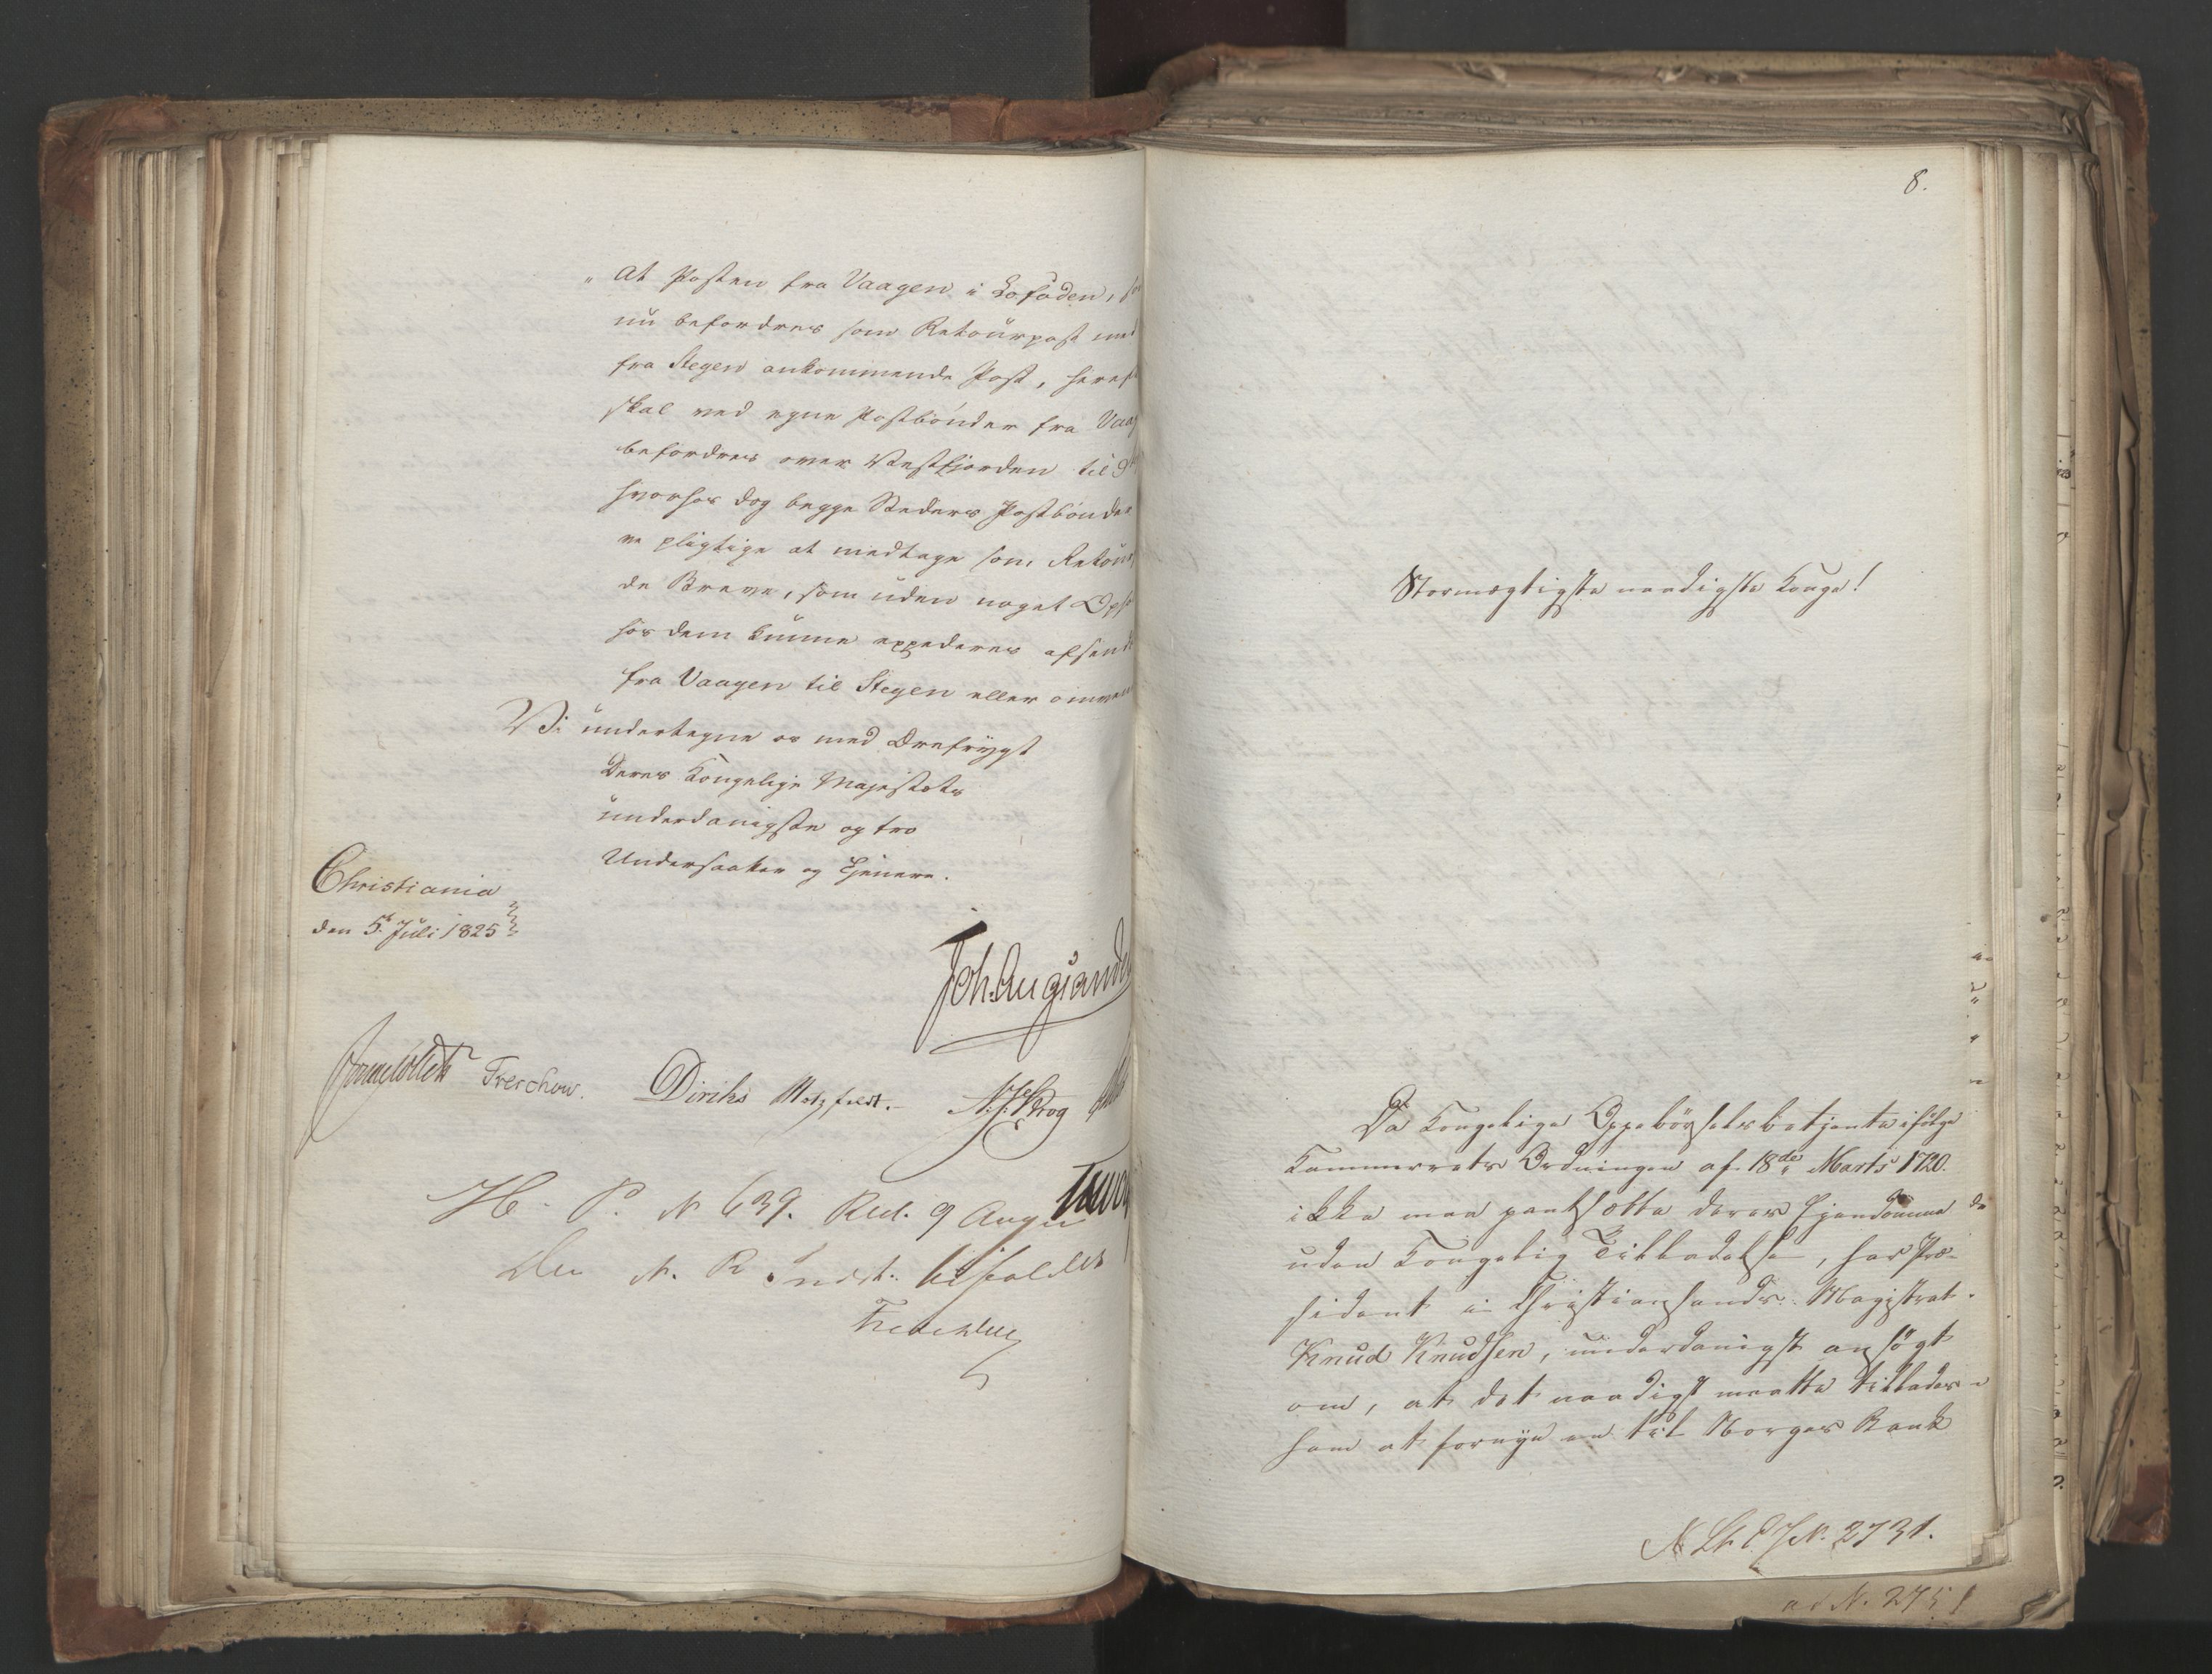 „At Posten fra Vaagen i Lofoden, so
nu befordres som Retourpost med
fra Stegen ankommende Post, heref
skal ved egne Postbönder fra Vaag
befordres over Vestfjorden til
hvorhos dog begge Steders Postbönder
re pligtige at medtage som Retour
de Breve, som uden noget Opho
hos dem kunne expederes afsendt
fra Vaagen til Stegen eller omven
Vi undertegne os med Ærefrygt
Deres Kongelige Majestæts
underdanigste og tro
Undersaatter og Tjenere.
Christiania
den 5te Juli 1825
Joh. Aug. Sande
Jonas Collett Treschow. Diriks Motzfeldt. N. J. Krog
H. P. N 639. Res. 9 August
Den N. R. Indst. bifaldes
8.
Stormægtigste naadigste Konge!
Da Kongelige Oppebörselsbetjente ifölge
Kammerrets Ordningen af 18de Marts 1720.
ikke maa pantsætte deres Ejendomme
uden Kongelig Tilladelse, har Præ-
sident i Christiansands Magistrat.
Knud Knudsen, underdanigst ansögt
om, at det naadigst maatte tillades
ham at fornye en til Norges Bank
N. 2731.
ad N. 2751